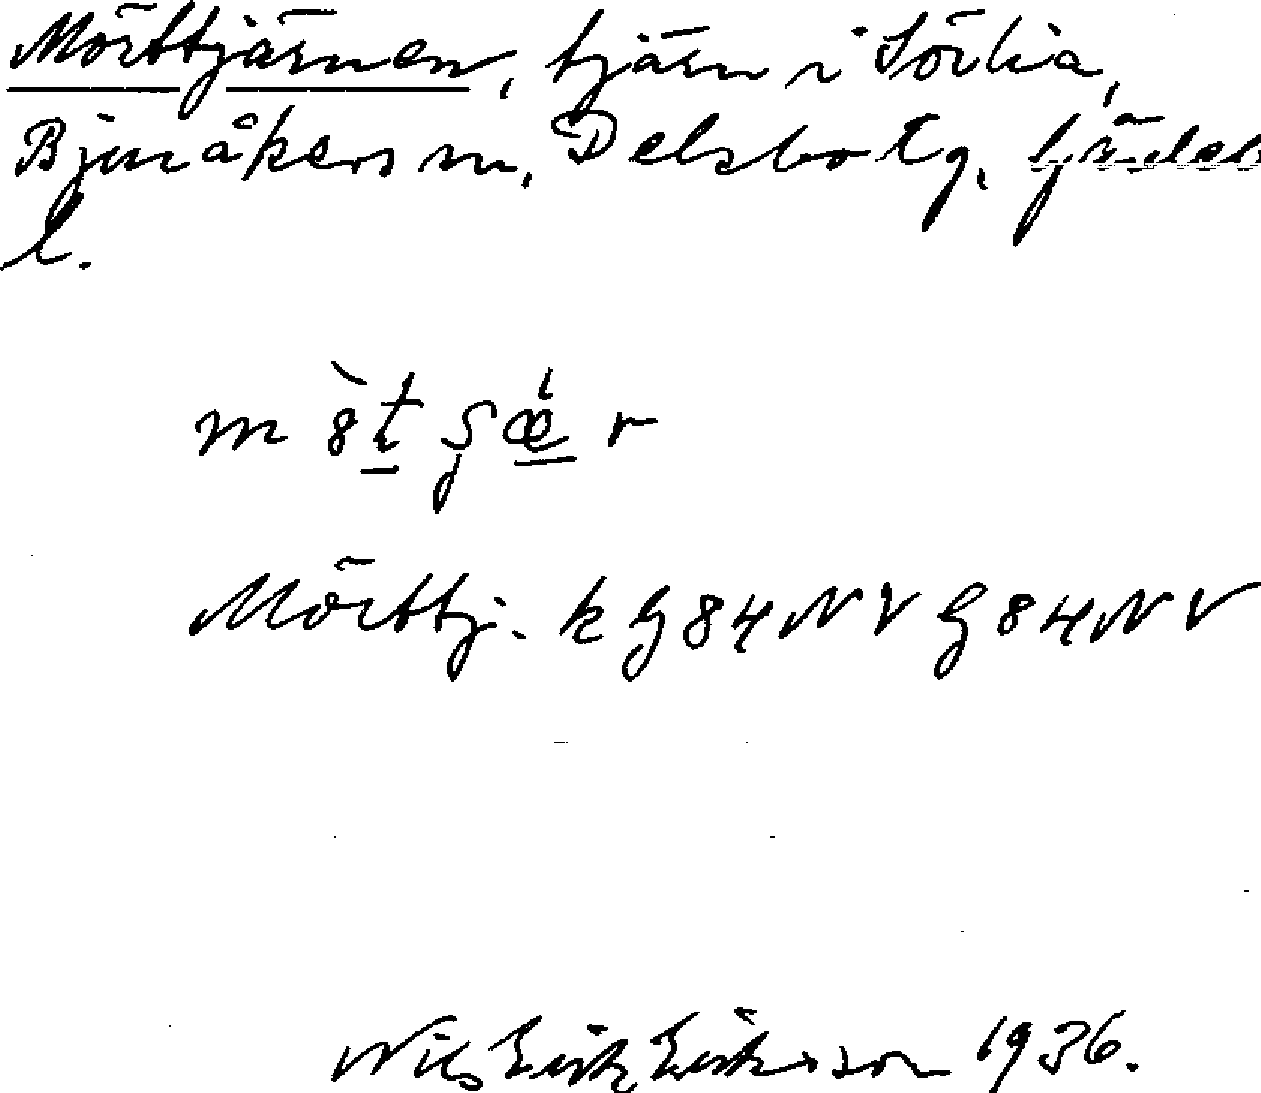 Mörttjärnen, tjärn i Sörlia,
Bjuråkers sn, Delsbo tg,
l.
m t r
Mörttj. k G84NV G84NV
Nils Erik Eriksson 1936.